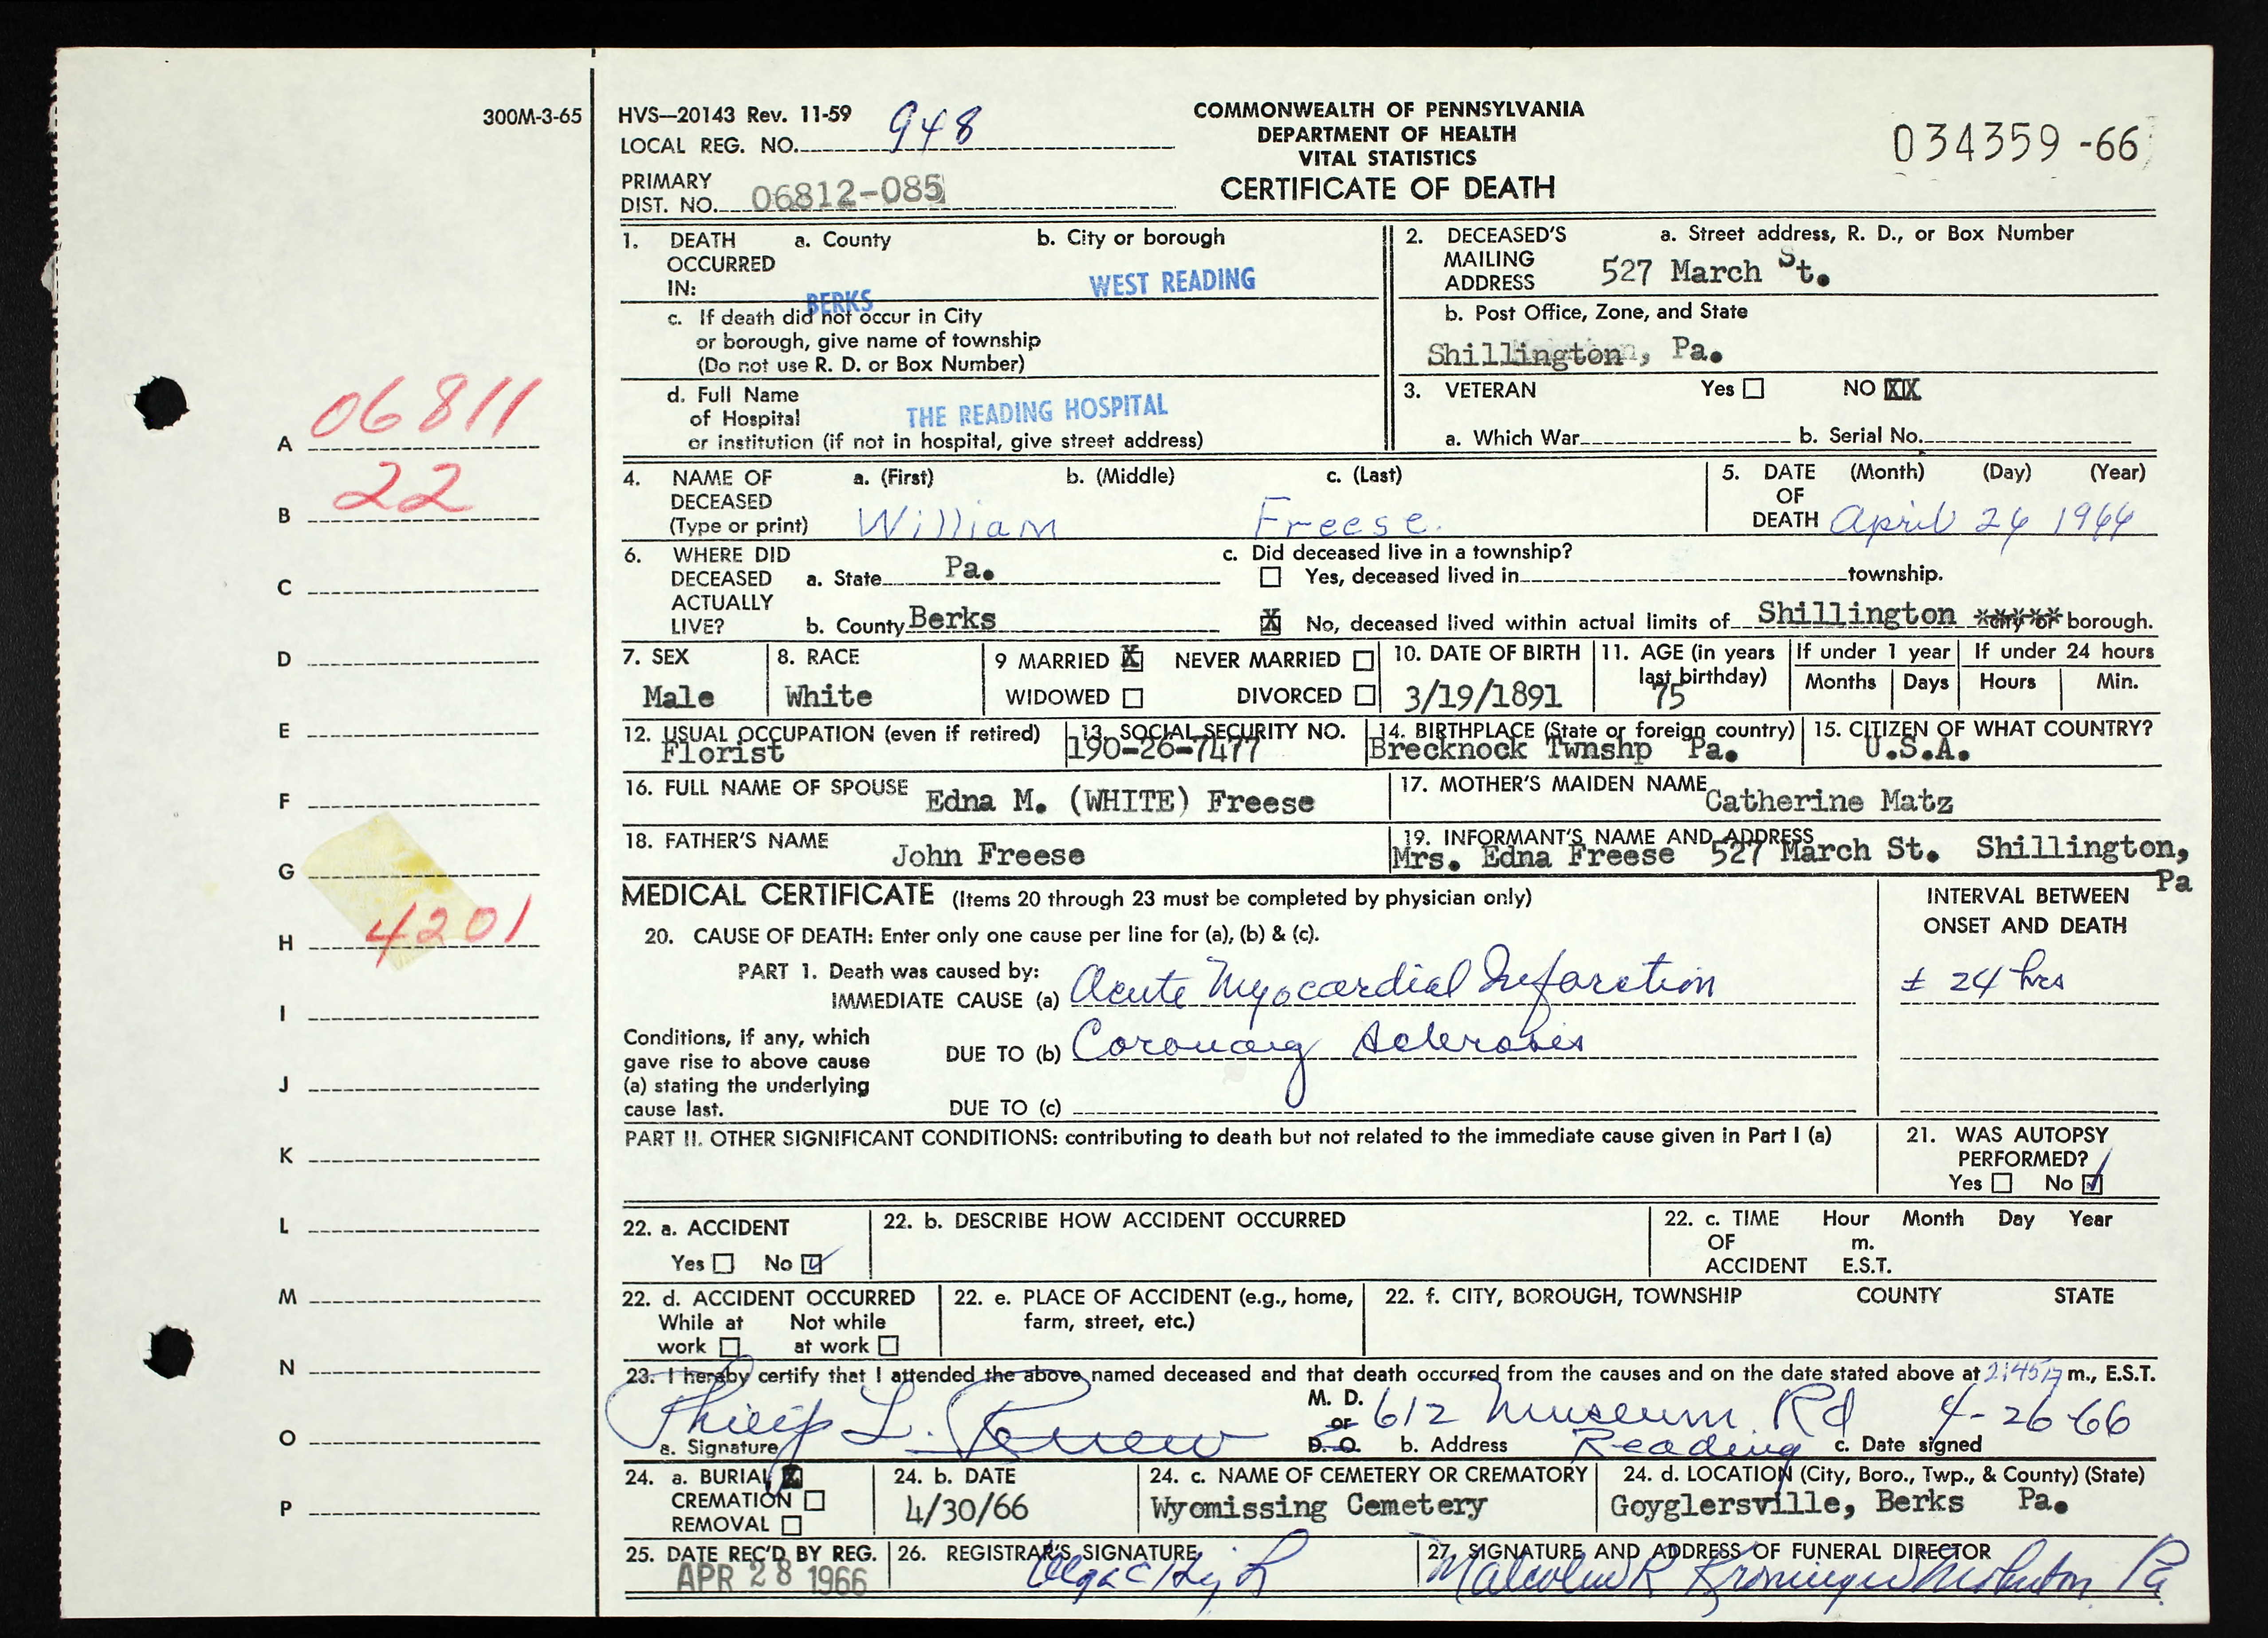 300M-3-65
HVS—20143 Rev. 11-59
LOCAL REG. NO. 948
PRIMARY
DIST. NO. 06812-085
COMMONWEALTH OF PENNSYLVANIA
DEPARTMENT OF HEALTH
VITAL STATISTICS
CERTIFICATE OF DEATH
034359 -66
1. DEATH OCCURRED IN: a. County BERKS b. City or borough WEST READING
c. If death did not occur in City
or borough, give name of township
(Do not use R. D. or Box Number)
d. Full Name
of Hospital THE READING HOSPITAL
or institution (if not in hospital, give street address)
2. DECEASED'S MAILING ADDRESS a. Street address, R. D., or Box Number
527 March St.
b. Post Office, Zone, and State
Shillington, Pa.
3. VETERAN Yes NO XX
a. Which War b. Serial No.
4. NAME OF DECEASED (Type or print) a. (First) b. (Middle) c. (Last)
William Freese.
5. DATE OF DEATH (Month) (Day) (Year)
April 26 1966
6. WHERE DID DECEASED ACTUALLY LIVE? a. State Pa.
b. County Berks
c. Did deceased live in a township?
Yes, deceased lived in township.
X No, deceased lived within actual limits of Shillington city or borough.
7. SEX Male
8. RACE White
9 MARRIED X NEVER MARRIED
WIDOWED DIVORCED
10. DATE OF BIRTH 3/19/1891
11. AGE (in years last birthday) 75
If under 1 year Months Days
If under 24 hours Hours Min.
12. USUAL OCCUPATION (even if retired) Florist
13. SOCIAL SECURITY NO. 190-26-7477
14. BIRTHPLACE (State or foreign country) Brecknock Twnshp Pa.
15. CITIZEN OF WHAT COUNTRY? U.S.A.
16. FULL NAME OF SPOUSE Edna M. (WHITE) Freese
17. MOTHER'S MAIDEN NAME Catherine Matz
18. FATHER'S NAME John Freese
19. INFORMANT'S NAME AND ADDRESS
Mrs. Edna Freese 527 March St. Shillington, Pa
MEDICAL CERTIFICATE (Items 20 through 23 must be completed by physician only)
INTERVAL BETWEEN
ONSET AND DEATH
20. CAUSE OF DEATH: Enter only one cause per line for (a), (b) & (c).
PART 1. Death was caused by:
IMMEDIATE CAUSE (a) Acute Myocardial Infarction ± 24 hrs
Conditions, if any, which
gave rise to above cause
(a) stating the underlying
cause last.
DUE TO (b) Coronary Sclerosis
DUE TO (c)
PART II. OTHER SIGNIFICANT CONDITIONS: contributing to death but not related to the immediate cause given in Part I (a)
21. WAS AUTOPSY
PERFORMED?
Yes No
22. a. ACCIDENT
Yes No
22. b. DESCRIBE HOW ACCIDENT OCCURRED
22. c. TIME OF ACCIDENT Hour Month Day Year
m.
E.S.T.
22. d. ACCIDENT OCCURRED
While at work Not while at work
22. e. PLACE OF ACCIDENT (e.g., home,
farm, street, etc.)
22. f. CITY, BOROUGH, TOWNSHIP COUNTY STATE
23. I hereby certify that I attended the above named deceased and that death occurred from the causes and on the date stated above at 2:45 m., E.S.T.
Philip L.
a. Signature
M. D.
or
D. O.
612 Museum Rd
b. Address Reading
4-26-66
c. Date signed
24. a. BURIAL X
CREMATION
REMOVAL
24. b. DATE
4/30/66
24. c. NAME OF CEMETERY OR CREMATORY
Wyomissing Cemetery
24. d. LOCATION (City, Boro., Twp., & County) (State)
Goyglersville, Berks Pa.
25. DATE REC'D BY REG.
APR 28 1966
26. REGISTRAR'S SIGNATURE
27. SIGNATURE AND ADDRESS OF FUNERAL DIRECTOR
Malcolm R Mohnton Pa
A 06811
B 22
C
D
E
F
G
H 4201
I
J
K
L
M
N
O
P